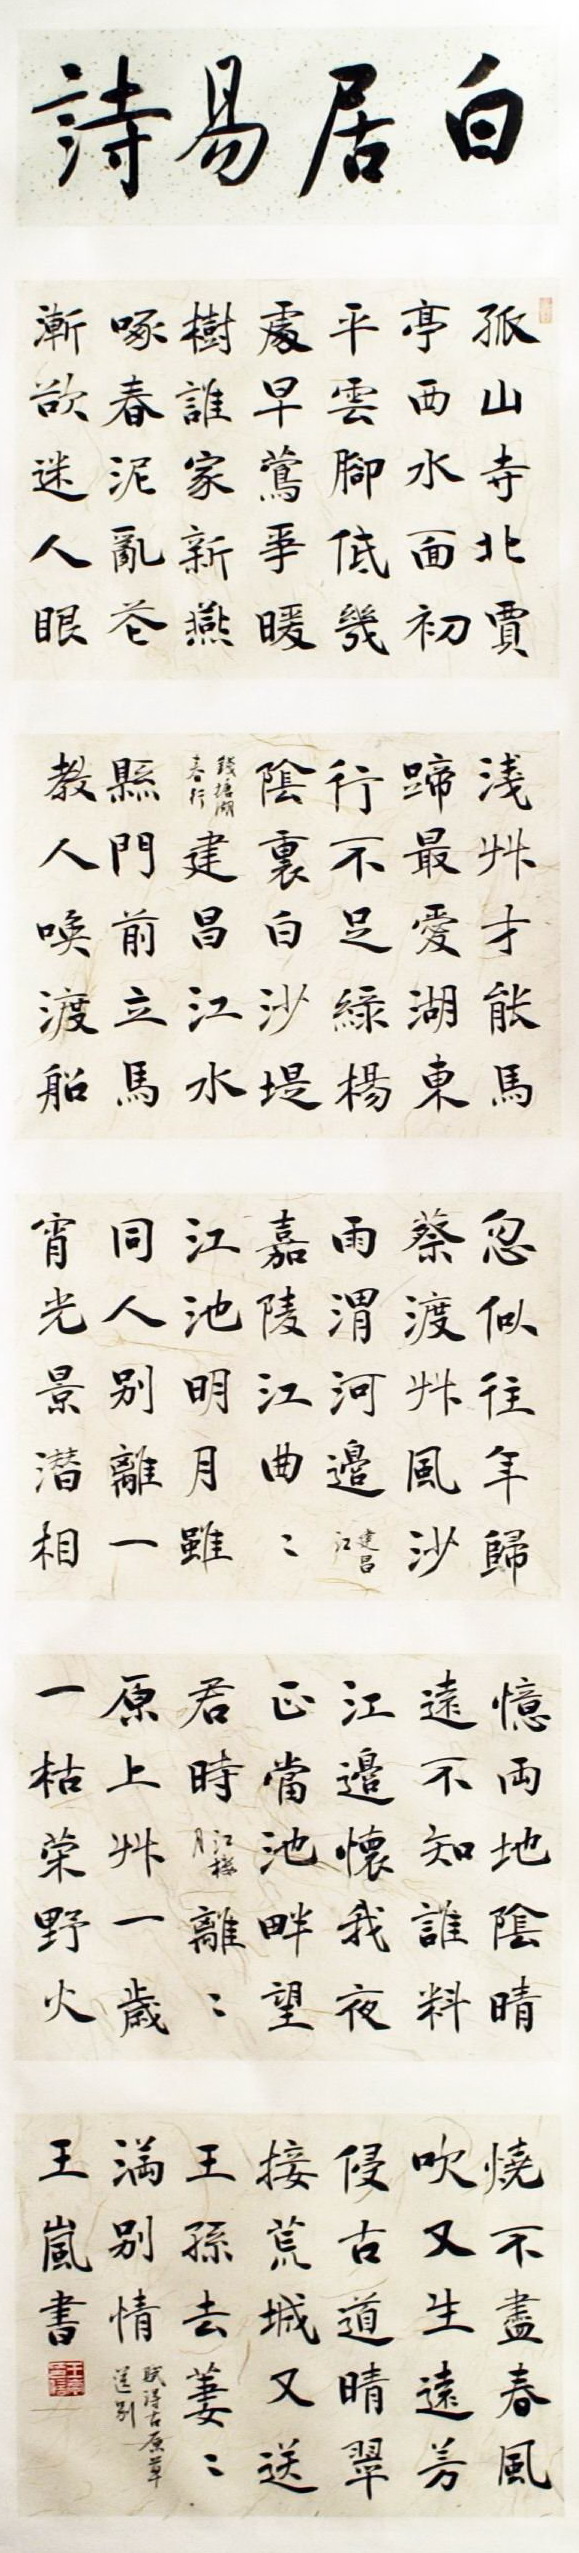 白居易詩
孤山寺北賈
亭西水面初
平雲腳低幾
處早鶯爭暖
樹誰家新燕
啄春泥亂花
漸欲迷人眼
淺艸才能馬
蹄最愛湖東
行不足綠楊
陰裏白沙堤
錢塘湖
春行
建昌江水
縣門前立馬
教人喚渡船
忽似往年歸
蔡渡艸風沙
雨渭河邊
建昌
江
嘉陵江曲〻
江池明月雖
同人別離一
宵光景潛相
憶兩地陰晴
遠不知誰料
江邊懷我夜
正當池畔望
君時
江樓
月
離〻
原上艸一歲
一枯荣野火
燒不盡春風
吹又生遠芳
侵古道晴翠
接荒城又送
王孫去萋〻
满別情
賦得古原草
送別
王嵐書